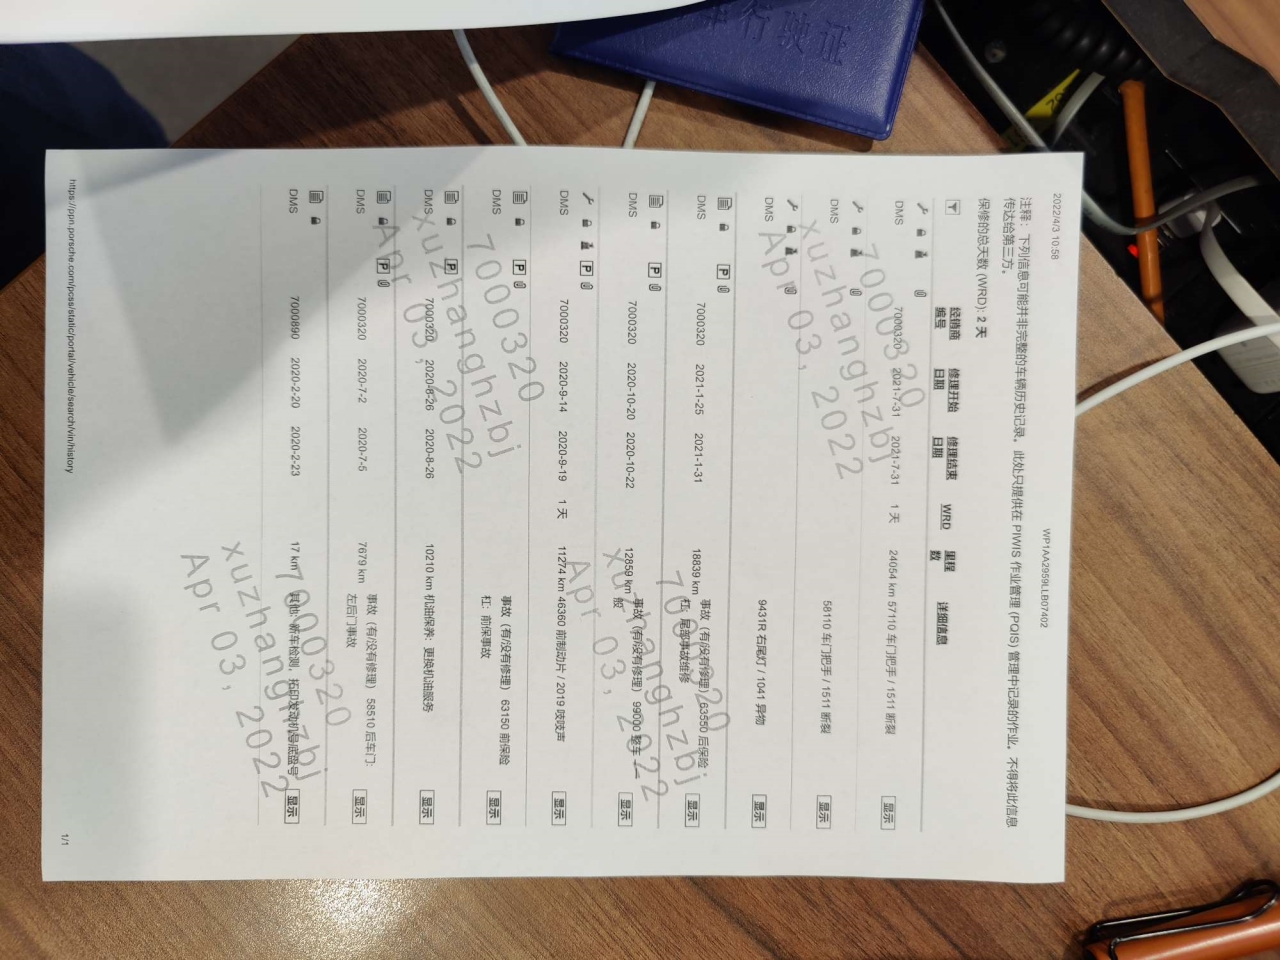 行驶证
2022/4/3 10:58
WP1AA2959LLB07402
注释：下列信息可能并非完整的车辆历史记录。此处只提供在 PIWIS 作业管理 (PQIS) 管理中记录的作业。不得将此信息
传达给第三方。
保修的总天数 (WRD): 2 天
经销商编号 修理开始日期 修理结束日期 WRD 里程数 详细信息
DMS 7000320 2021-7-31 2021-7-31 1 天 24054 km 57110 车门把手 / 1511 断裂 显示
DMS 58110 车门把手 / 1511 断裂 显示
DMS 9431R 右尾灯 / 1041 异物 显示
DMS P 7000320 2021-1-25 2021-1-31 18839 km 事故（有/没有修理） 63550 后保险
杠：尾部事故维修 显示
DMS P 7000320 2020-10-20 2020-10-22 12859 km 事故（有/没有修理） 99000 整车一
般 显示
DMS P 7000320 2020-9-14 2020-9-19 1 天 11274 km 46360 前制动片 / 2019 吱吱声 显示
DMS P 事故（有/没有修理） 63150 前保险
杠：前保事故 显示
DMS P 7000320 2020-8-26 2020-8-26 10210 km 机油保养：更换机油服务 显示
DMS P 7000320 2020-7-2 2020-7-5 7679 km 事故（有/没有修理） 58510 后车门：
左后门事故 显示
DMS 7000890 2020-2-20 2020-2-23 17 km 其他：新车检测，拓印发动机号底盘号 显示
7000320
xuzhanghzbj
Apr 03, 2022
7000320
xuzhanghzbj
Apr 03, 2022
7000320
xuzhanghzbj
Apr 03, 2022
7000320
xuzhanghzbj
Apr 03, 2022
https://ppn.porsche.com/pcss/static/portal/vehicle/search/vin/history
1/1